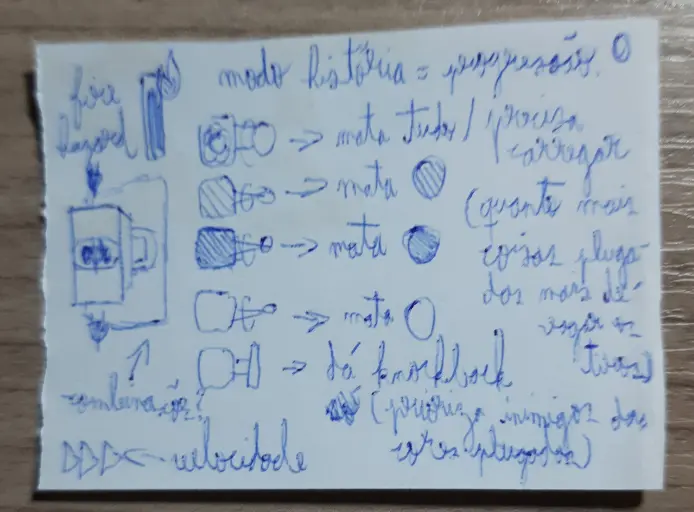 modo história = progressão
fire
hazard
→ mata tudo / precisa
carregar
→ mata
(quanto mais
→ mata
coisas pluga-
das mais de-
→ mata
vagar os
tiros)
→ dá knockback
combinações?
(prioriza inimigos das
cores plugadas)
velocidade